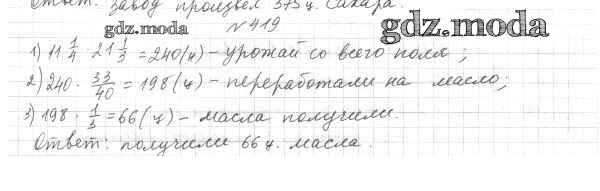 Ответ: завод произвел 375 ц. сахара.
gdz.moda
№ 419
gdz.moda
1) 11 1/4 · 21 1/3 = 240 (ц) - урожай со всего поля ;
2) 240 · 33/40 = 198 (ц) - переработали на масло;
3) 198 · 1/3 = 66 (ц) - масла получили.
Ответ: получили 66 ц. масла.